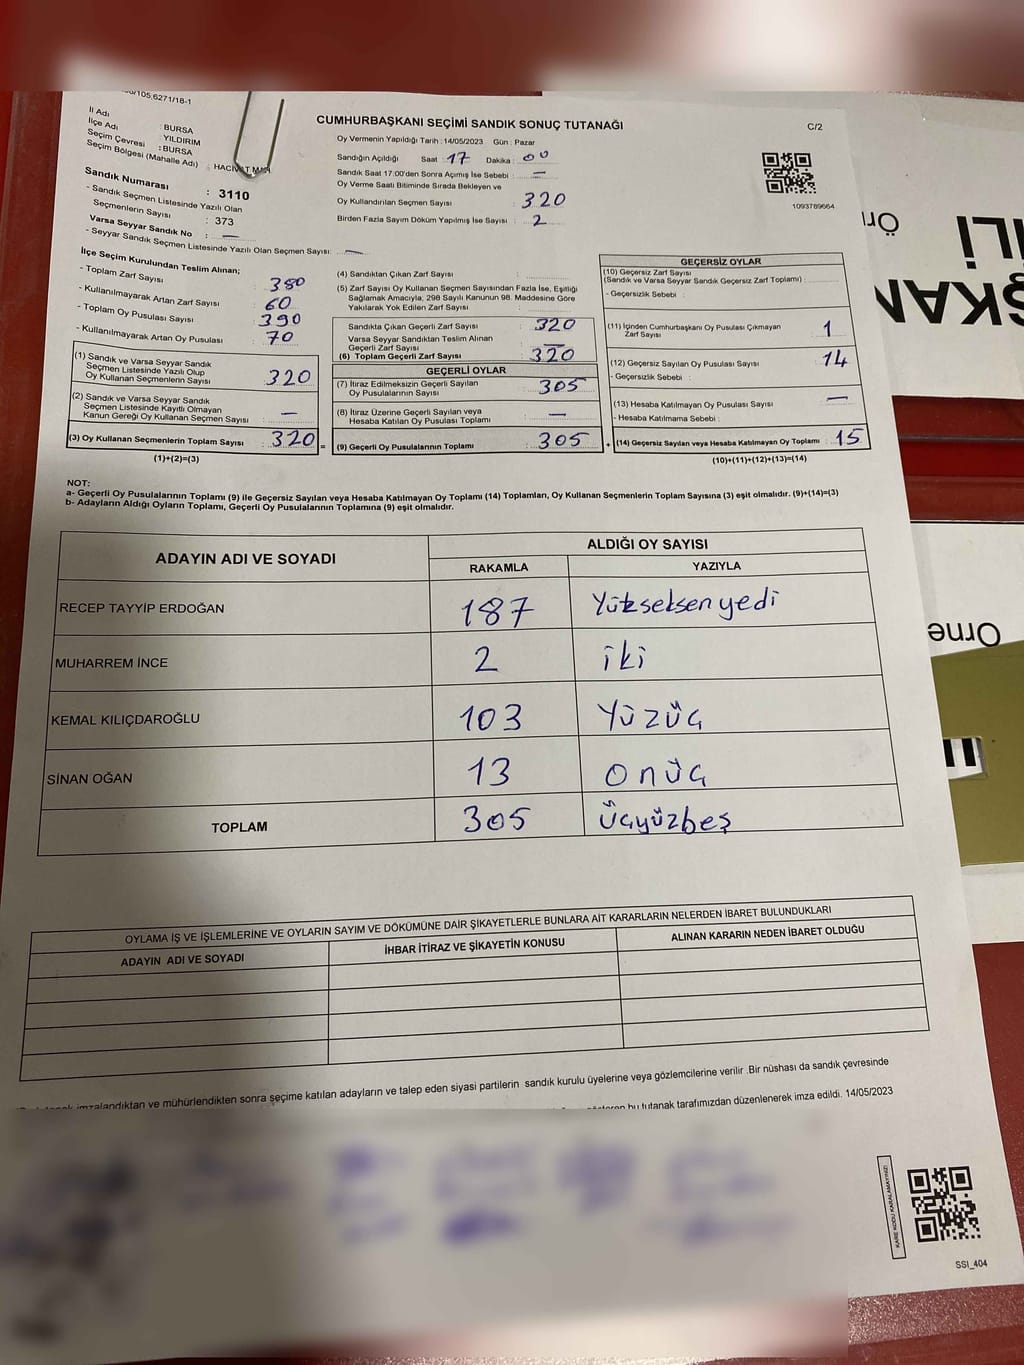 /105.6271/18-1
İl Adı : BURSA
İlçe Adı : YILDIRIM
Seçim Çevresi : BURSA
Seçim Bölgesi (Mahalle Adı) : HACİVAT
Sandık Numarası : 3110
- Sandık Seçmen Listesinde Yazılı Olan
Seçmenlerin Sayısı : 373
Varsa Seyyar Sandık No : —
- Seyyar Sandık Seçmen Listesinde Yazılı Olan Seçmen Sayısı: —
CUMHURBAŞKANI SEÇİMİ SANDIK SONUÇ TUTANAĞI
C/2
Oy Vermenin Yapıldığı Tarih : 14/05/2023 Gün : Pazar
Sandığın Açıldığı Saat 17 Dakika : 00
Sandık Saat 17:00'den Sonra Açımış İse Sebebi : —
Oy Verme Saati Bitiminde Sırada Bekleyen ve
Oy Kullandırılan Seçmen Sayısı : 320
Birden Fazla Sayım Döküm Yapılmış İse Sayısı : 2
1093789664
İlçe Seçim Kurulundan Teslim Alınan;
- Toplam Zarf Sayısı : 380
- Kullanılmayarak Artan Zarf Sayısı : 60
- Toplam Oy Pusulası Sayısı : 390
- Kullanılmayarak Artan Oy Pusulası : 70
(1) Sandık ve Varsa Seyyar Sandık
Seçmen Listesinde Yazılı Olup
Oy Kullanan Seçmenlerin Sayısı : 320
(2) Sandık ve Varsa Seyyar Sandık
Seçmen Listesinde Kayıtlı Olmayan
Kanun Gereği Oy Kullanan Seçmen Sayısı : —
(3) Oy Kullanan Seçmenlerin Toplam Sayısı : 320 =
(1)+(2)=(3)
(4) Sandıktan Çıkan Zarf Sayısı :
(5) Zarf Sayısı Oy Kullanan Seçmen Sayısından Fazla İse, Eşitliği
Sağlamak Amacıyla, 298 Sayılı Kanunun 98. Maddesine Göre
Yakılarak Yok Edilen Zarf Sayısı :
Sandıkta Çıkan Geçerli Zarf Sayısı : 320
Varsa Seyyar Sandıktan Teslim Alınan
Geçerli Zarf Sayısı : —
(6) Toplam Geçerli Zarf Sayısı : 320
GEÇERLİ OYLAR
(7) İtiraz Edilmeksizin Geçerli Sayılan
Oy Pusulalarının Sayısı : 305
(8) İtiraz Üzerine Geçerli Sayılan veya
Hesaba Katılan Oy Pusulası Toplamı : —
(9) Geçerli Oy Pusulalarının Toplamı : 305 +
GEÇERSİZ OYLAR
(10) Geçersiz Zarf Sayısı
(Sandık ve Varsa Seyyar Sandık Geçersiz Zarf Toplamı) :
- Geçersizlik Sebebi :
(11) İçinden Cumhurbaşkanı Oy Pusulası Çıkmayan
Zarf Sayısı : 1
(12) Geçersiz Sayılan Oy Pusulası Sayısı : 14
- Geçersizlik Sebebi :
(13) Hesaba Katılmayan Oy Pusulası Sayısı : —
- Hesaba Katılmama Sebebi :
(14) Geçersiz Sayılan veya Hesaba Katılmayan Oy Toplamı : 15
(10)+(11)+(12)+(13)=(14)
NOT:
a- Geçerli Oy Pusulalarının Toplamı (9) ile Geçersiz Sayılan veya Hesaba Katılmayan Oy Toplamı (14) Toplamları, Oy Kullanan Seçmenlerin Toplam Sayısına (3) eşit olmalıdır. (9)+(14)=(3)
b- Adayların Aldığı Oyların Toplamı, Geçerli Oy Pusulalarının Toplamına (9) eşit olmalıdır.
ADAYIN ADI VE SOYADI
ALDIĞI OY SAYISI
RAKAMLA YAZIYLA
RECEP TAYYİP ERDOĞAN 187 Yükseksenyedi
MUHARREM İNCE 2 iki
KEMAL KILIÇDAROĞLU 103 Yüzüç
SİNAN OĞAN 13 onüç
TOPLAM 305 üçyüzbeş
OYLAMA İŞ VE İŞLEMLERİNE VE OYLARIN SAYIM VE DÖKÜMÜNE DAİR ŞİKAYETLERLE BUNLARA AİT KARARLARIN NELERDEN İBARET BULUNDUKLARI
ADAYIN ADI VE SOYADI
İHBAR İTİRAZ VE ŞİKAYETİN KONUSU
ALINAN KARARIN NEDEN İBARET OLDUĞU
imzalandıktan ve mühürlendikten sonra seçime katılan adayların ve talep eden siyasi partilerin sandık kurulu üyelerine veya gözlemcilerine verilir .Bir nüshası da sandık çevresinde
bu tutanak tarafımızdan düzenlenerek imza edildi. 14/05/2023
KARE KODU KARALAMAYINIZ!
SSI_404
Örne